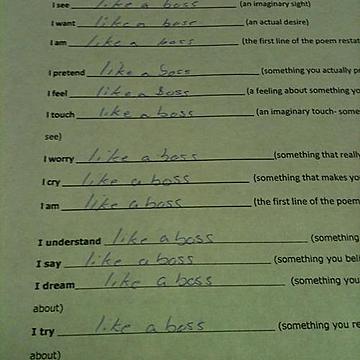 I see like a boss (an imaginary sight)
I want like a boss (an actual desire)
I am like a boss (the first line of the poem restat
I pretend like a boss (something you actually p
I feel like a boss (a feeling about something yo
I touch like a boss (an imaginary touch- some
see)
I worry like a boss (something that really
I cry like a boss (something that makes yo
I am like a boss (the first line of the poem
I understand like a boss (something
I say like a boss (something you beli
I dream like a boss (something you
about)
I try like a boss (something you re
about)